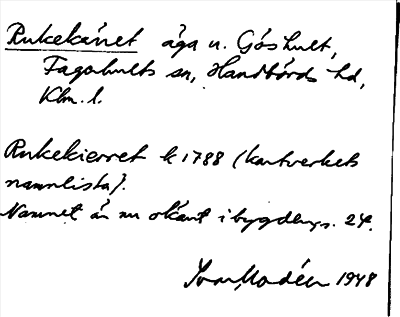 Rukekärret äga u. Göshult,
Fagerhults sn, Handbörds hd,
Klm. l.
Rukekierret k 1788 (kartverkets
namnlista).
Namnet är nu okänt i bygden, 24.
Ivar Modéer 1948